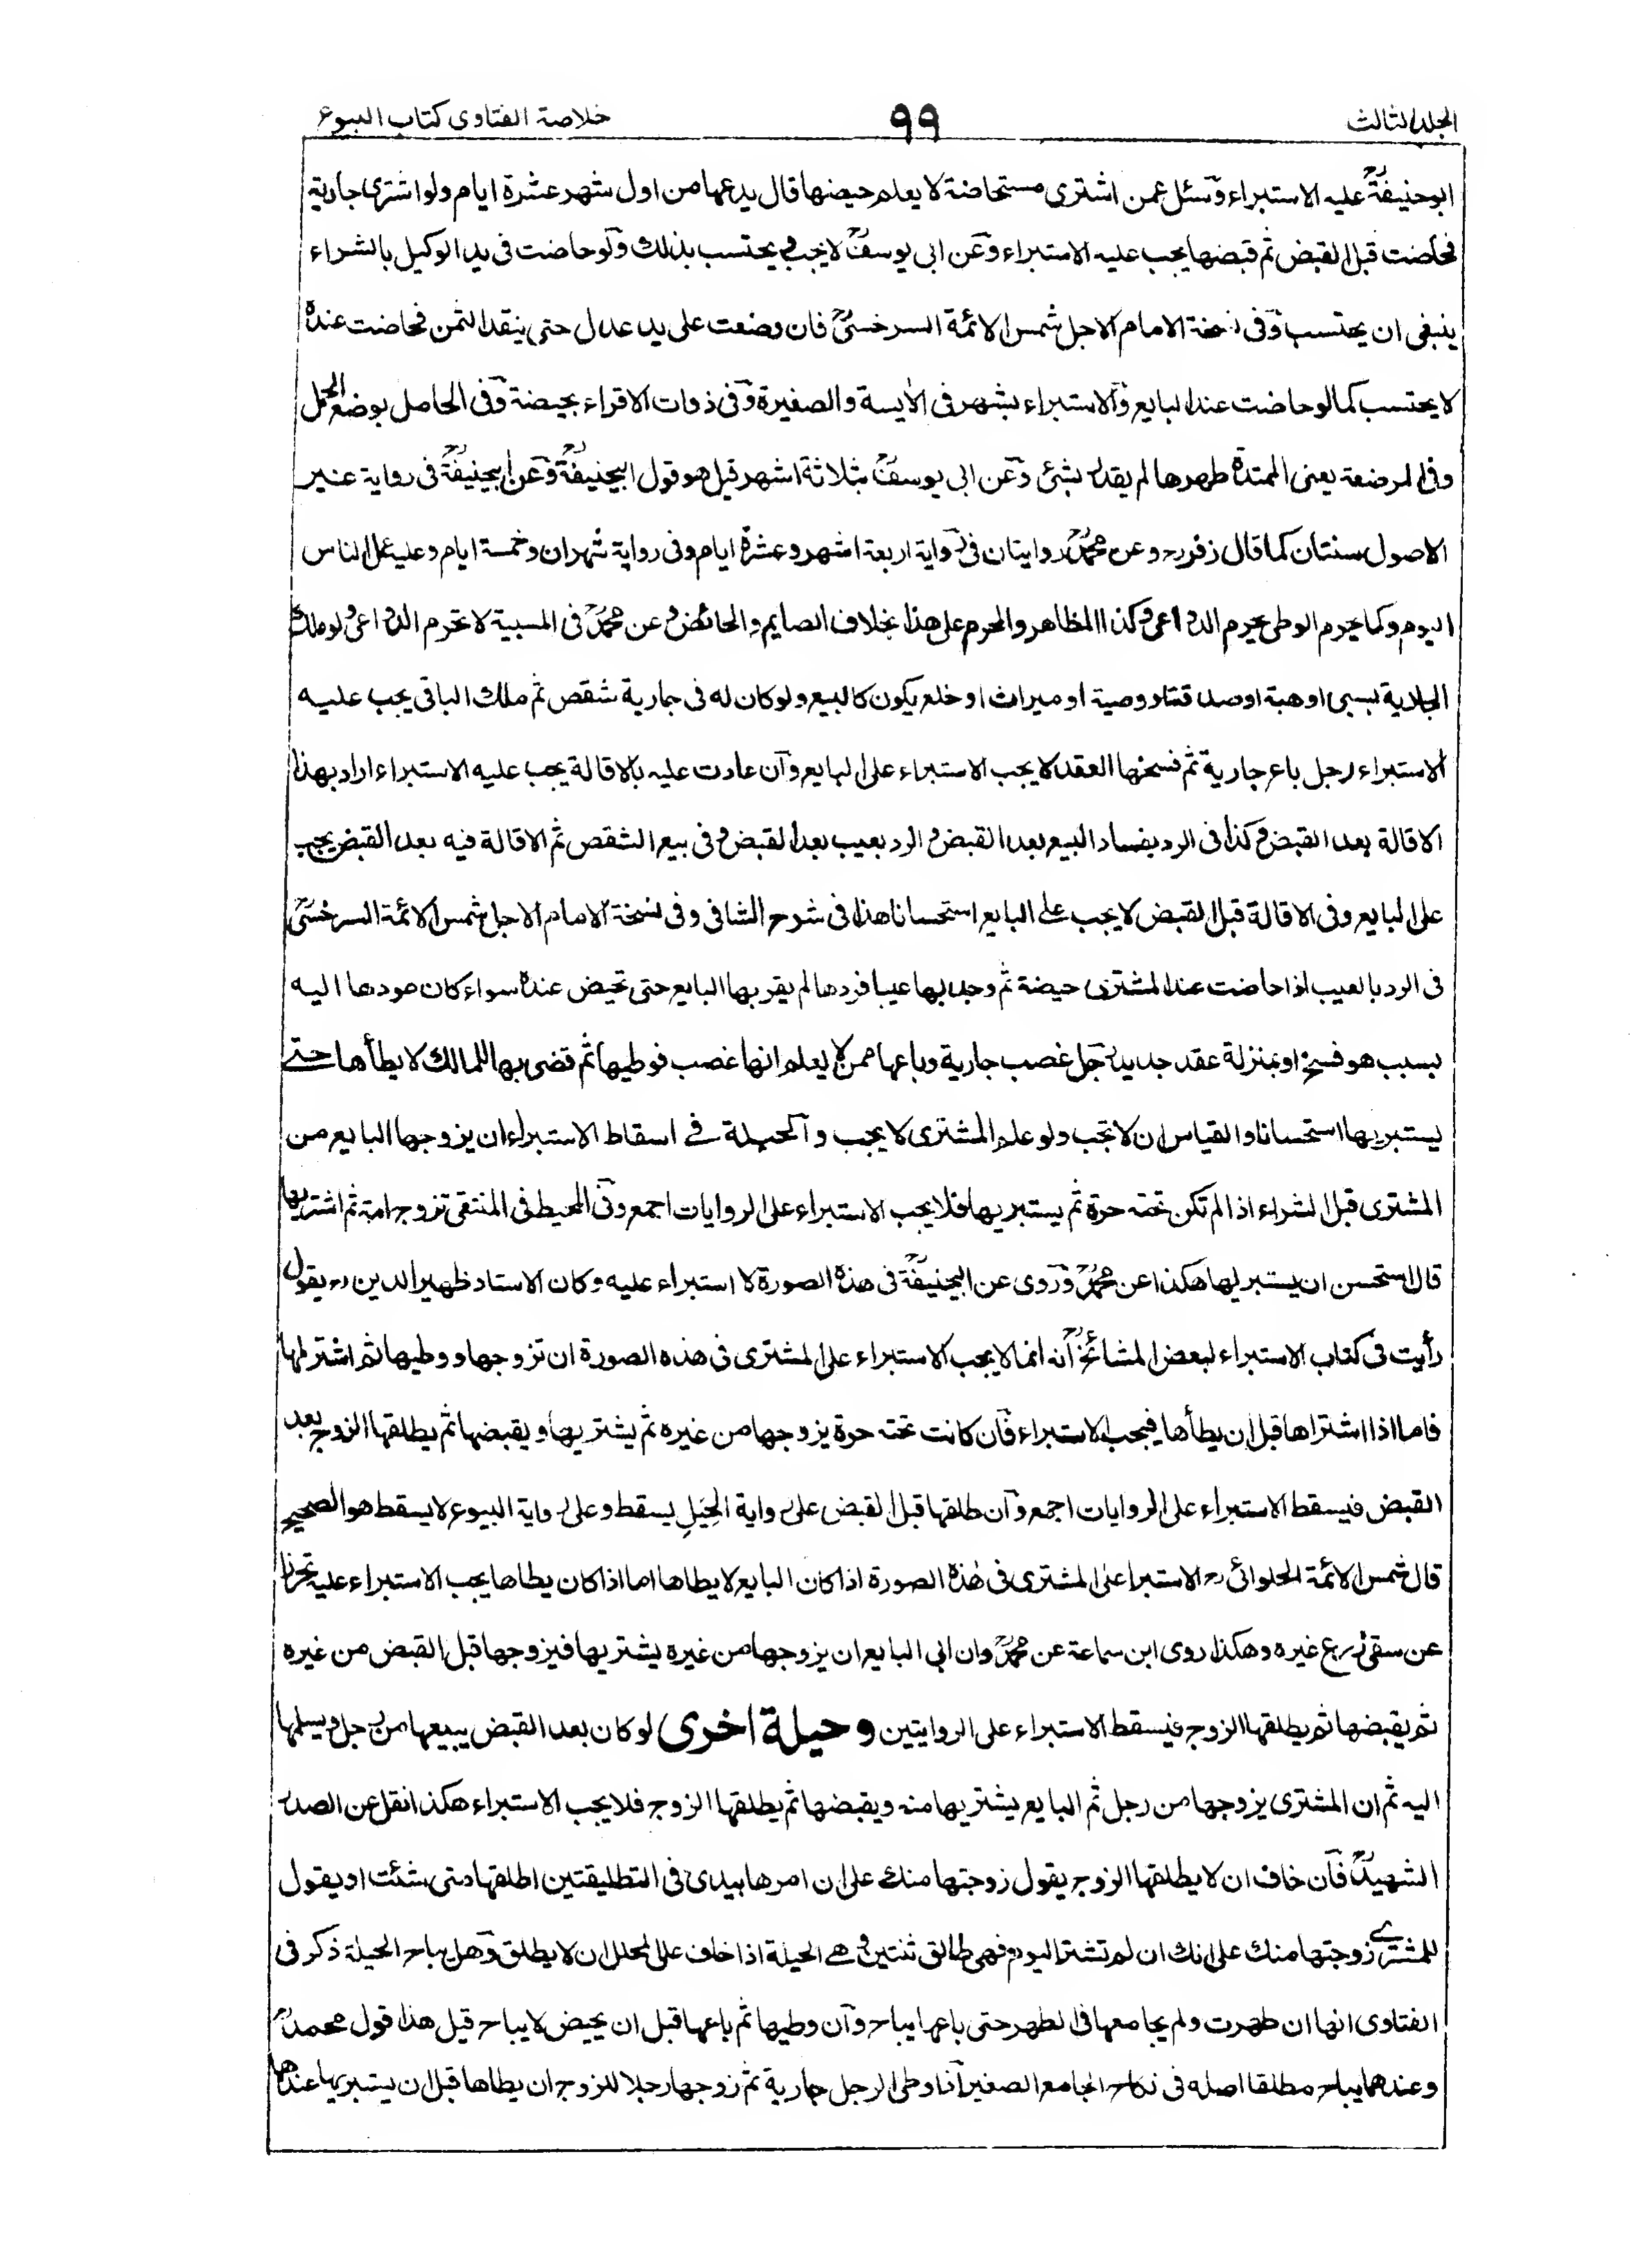 الجلد الثالث ٩٩ خلاصة الفتاوى كتاب البيوع
ابوحنيفةؒ عليه الاستبراء وسئل عمن اشترى مستحاضة لا يعلم حيضها قال يدعها من اول شهر عشرة ايام ولو اشترى جارية
فحاضت قبل القبض ثم قبضها يجب عليه الاستبراء وعن ابى يوسفؒ لا يجب ويحتسب بذلك ولو حاضت فى يد الوكيل بالشراء
ينبغى ان يحتسب وفى نسخة الامام الاجل شمس الائمة السرخسىؒ فان وضعت على يد عدل حتى ينقد الثمن فحاضت عنده
لا يحتسب كما لو حاضت عند البايع والاستبراء بشهر فى الاٰيسة والصغيرة وفى ذوات الاقراء بحيضة وفى الحامل بوضع الحمل
وفى المرضعة يعنى الممتدة طهرها لم يقدر بشئ وعن ابى يوسفؒ بثلاثة اشهر قيل هو قول ابيحنيفةؒ وعن ابيحنيفةؒ فى رواية غير
الاصول سنتان كما قال زفر رح وعن محمدؒ روايتان فى رواية اربعة اشهر وعشرة ايام وفى رواية شهران وخمسة ايام وعليه عمل الناس
اليوم وكما يحرم الوطى يحرم الدواعى وكذا المظاهر والمحرم على هذا بخلاف الصايم والحائض وعن محمدؒ فى المسبية لا تحرم الدواعى ولو ملك
الجارية بسبى او هبة او صدقة او وصية او ميراث او خلع يكون كالبيع ولو كان له فى جارية شقص ثم ملك الباقى يجب عليه
الاستبراء رجل باع جارية ثم فسخها العقد لا يجب الاستبراء على البايع وان عادت عليه بالاقالة يجب عليه الاستبراء اراد بهذا
الاقالة بعد القبض وكذا فى الرد بفساد البيع بعد القبض والرد بعيب بعد القبض وفى بيع الشقص ثم الاقالة فيه بعد القبض يجب
على البايع وفى الاقالة قبل القبض لا يجب على البايع استحسانا هذا فى شرح الشافى وفى نسخة الامام الاجل شمس الائمة السرخسىؒ
فى الرد بالعيب اذا حاضت عند المشترى حيضة ثم وجد بها عيبا فردها لم يقربها البايع حتى تحيض عنده سواء كان عودها اليه
بسبب هو فسخ او بمنزلة عقد جديد رجل غصب جارية وباعها ممن لا يعلم انها غصب فوطيها ثم قضى بها للمالك لا يطأها حتى
يستبريها استحسانا والقياس ان لا تجب ولو علم المشترى لا يجب والحيلة فى اسقاط الاستبراء ان يزوجها البايع من
المشترى قبل الشراء اذا لم تكن تحته حرة ثم يستبريها فلا يجب الاستبراء على الروايات اجمع وفى المحيط فى المنتقى تزوج امة ثم اشتريها
قال استحسن ان يستبريها هكذا عن محمدؒ وروى عن ابيحنيفةؒ فى هذه الصورة لا استبراء عليه وكان الاستاد ظهير الدين رح يقول
رأيت فى كتاب الاستبراء لبعض المشائخؒ انه انما لا يجب الاستبراء على المشترى فى هذه الصورة ان تزوجها ووطيها ثم اشتراها
فاما اذا اشتراها قبل ان يطأها فيجب الاستبراء فان كانت تحته حرة يزوجها من غيره ثم يشتريها ويقبضها ثم يطلقها الزوج بعد
القبض فيسقط الاستبراء على الروايات اجمع وان طلقها قبل القبض على رواية الحيل يسقط وعلى رواية البيوع لا يسقط هو الصحيح
قال شمس الائمة الحلوائى رح الاستبرا على المشترى فى هٰذه الصورة اذا كان البايع لا يطاها اما اذا كان يطاها يجب الاستبراء عليه تحرزا
عن سقى زرع غيره وهكذا روى ابن سماعة عن محمدؒ وان ابى البايع ان يزوجها من غيره يشتريها فيزوجها قبل القبض من غيره
ثم يقبضها ثم يطلقها الزوج فيسقط الاستبراء على الروايتين وحيلة اخرى لو كان بعد القبض يبيعها من رجل ويسلمها
اليه ثم ان المشترى يزوجها من رجل ثم البايع يشتريها منه ويقبضها ثم يطلقها الزوج فلا يجب الاستبراء هكذا نقل عن الصدر
الشهيدؒ فان خاف ان لا يطلقها الزوج يقول زوجتها منك على ان امرها بيدى فى التطليقتين اطلقها متى شئت او يقول
للمشترى زوجتها منك على انك ان لم تشتر اليوم فهى طالق ثنتين وهى الحيلة اذا خاف على المحلل ان لا يطلق وهل يباح الحيلة ذكر فى
الفتاوى انها ان طهرت ولم يجامعها فى الطهر حتى باعها يباح وان وطيها ثم باعها قبل ان يحيض لا يباح قيل هذا قول محمدؒ
وعندهما يباح مطلقا اصله فى نكاح الجامع الصغير اذا وطى الرجل جارية ثم زوجها رجلا للزوج ان يطاها قبل ان يستبريها عندهما